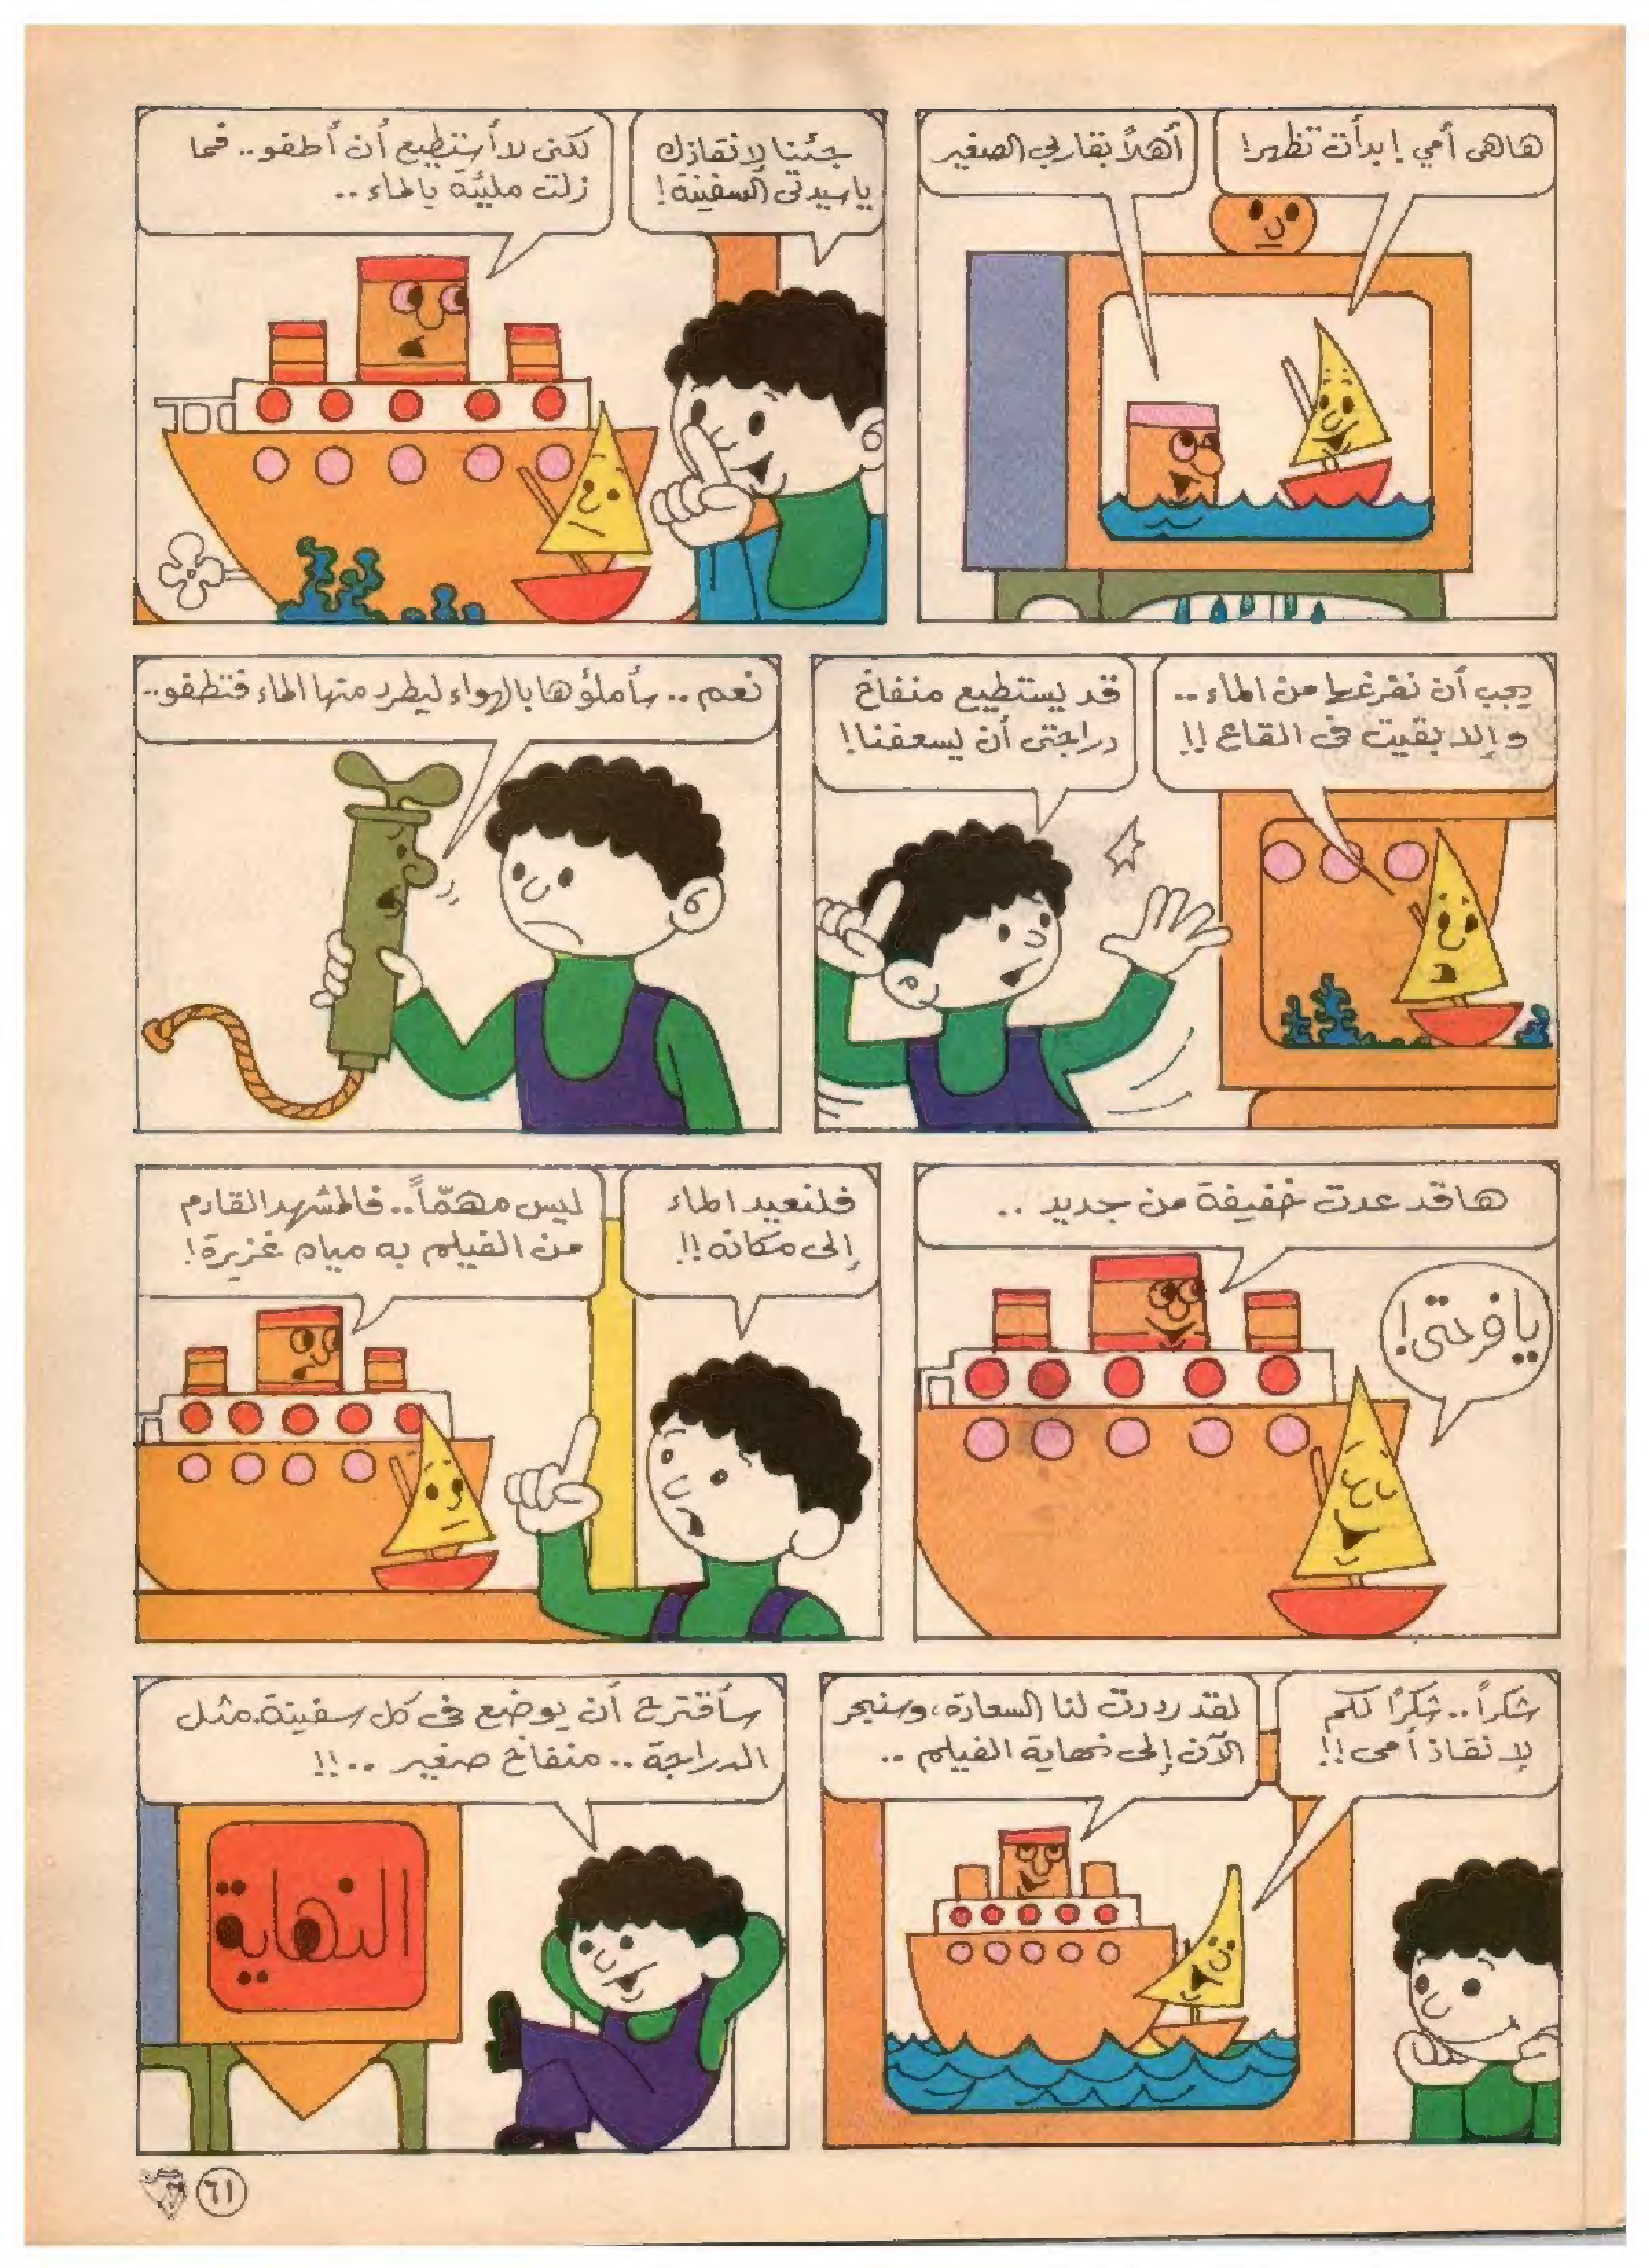 هاهى أمي ! بدأت تظهر!
أهلاً بقاربي الصغير
جئنا لإنقاذك
ياسيدتى السفينة!
لكنى لا أستطيع أن أطفو.. فما
زلت مليئة بالماء ..
يجب أن نفرغها من الماء ..
وإلا بقيت فى القاع !!
قد يستطيع منفاخ
دراجتى أن يسعفنا!
نعم .. سأملؤها بالهواء ليطرد منها الماء فتطفو..
ها قد عدت خفيفة من جديد ..
يا فرحتى!
فلنعيد الماء
إلى مكانه !!
ليس مهمّاً.. فالمشهد القادم
من الفيلم به مياه غزيرة!
شكراً.. شكرًا لكم
لإنقاذ أمى !!
لقد رددت لنا السعادة، وسنبحر
الآن إلى نهاية الفيلم ..
سأقترح أن يوضع فى كل سفينة.مثل
الدراجة .. منفاخ صغير ..!!
النهاية
٦١